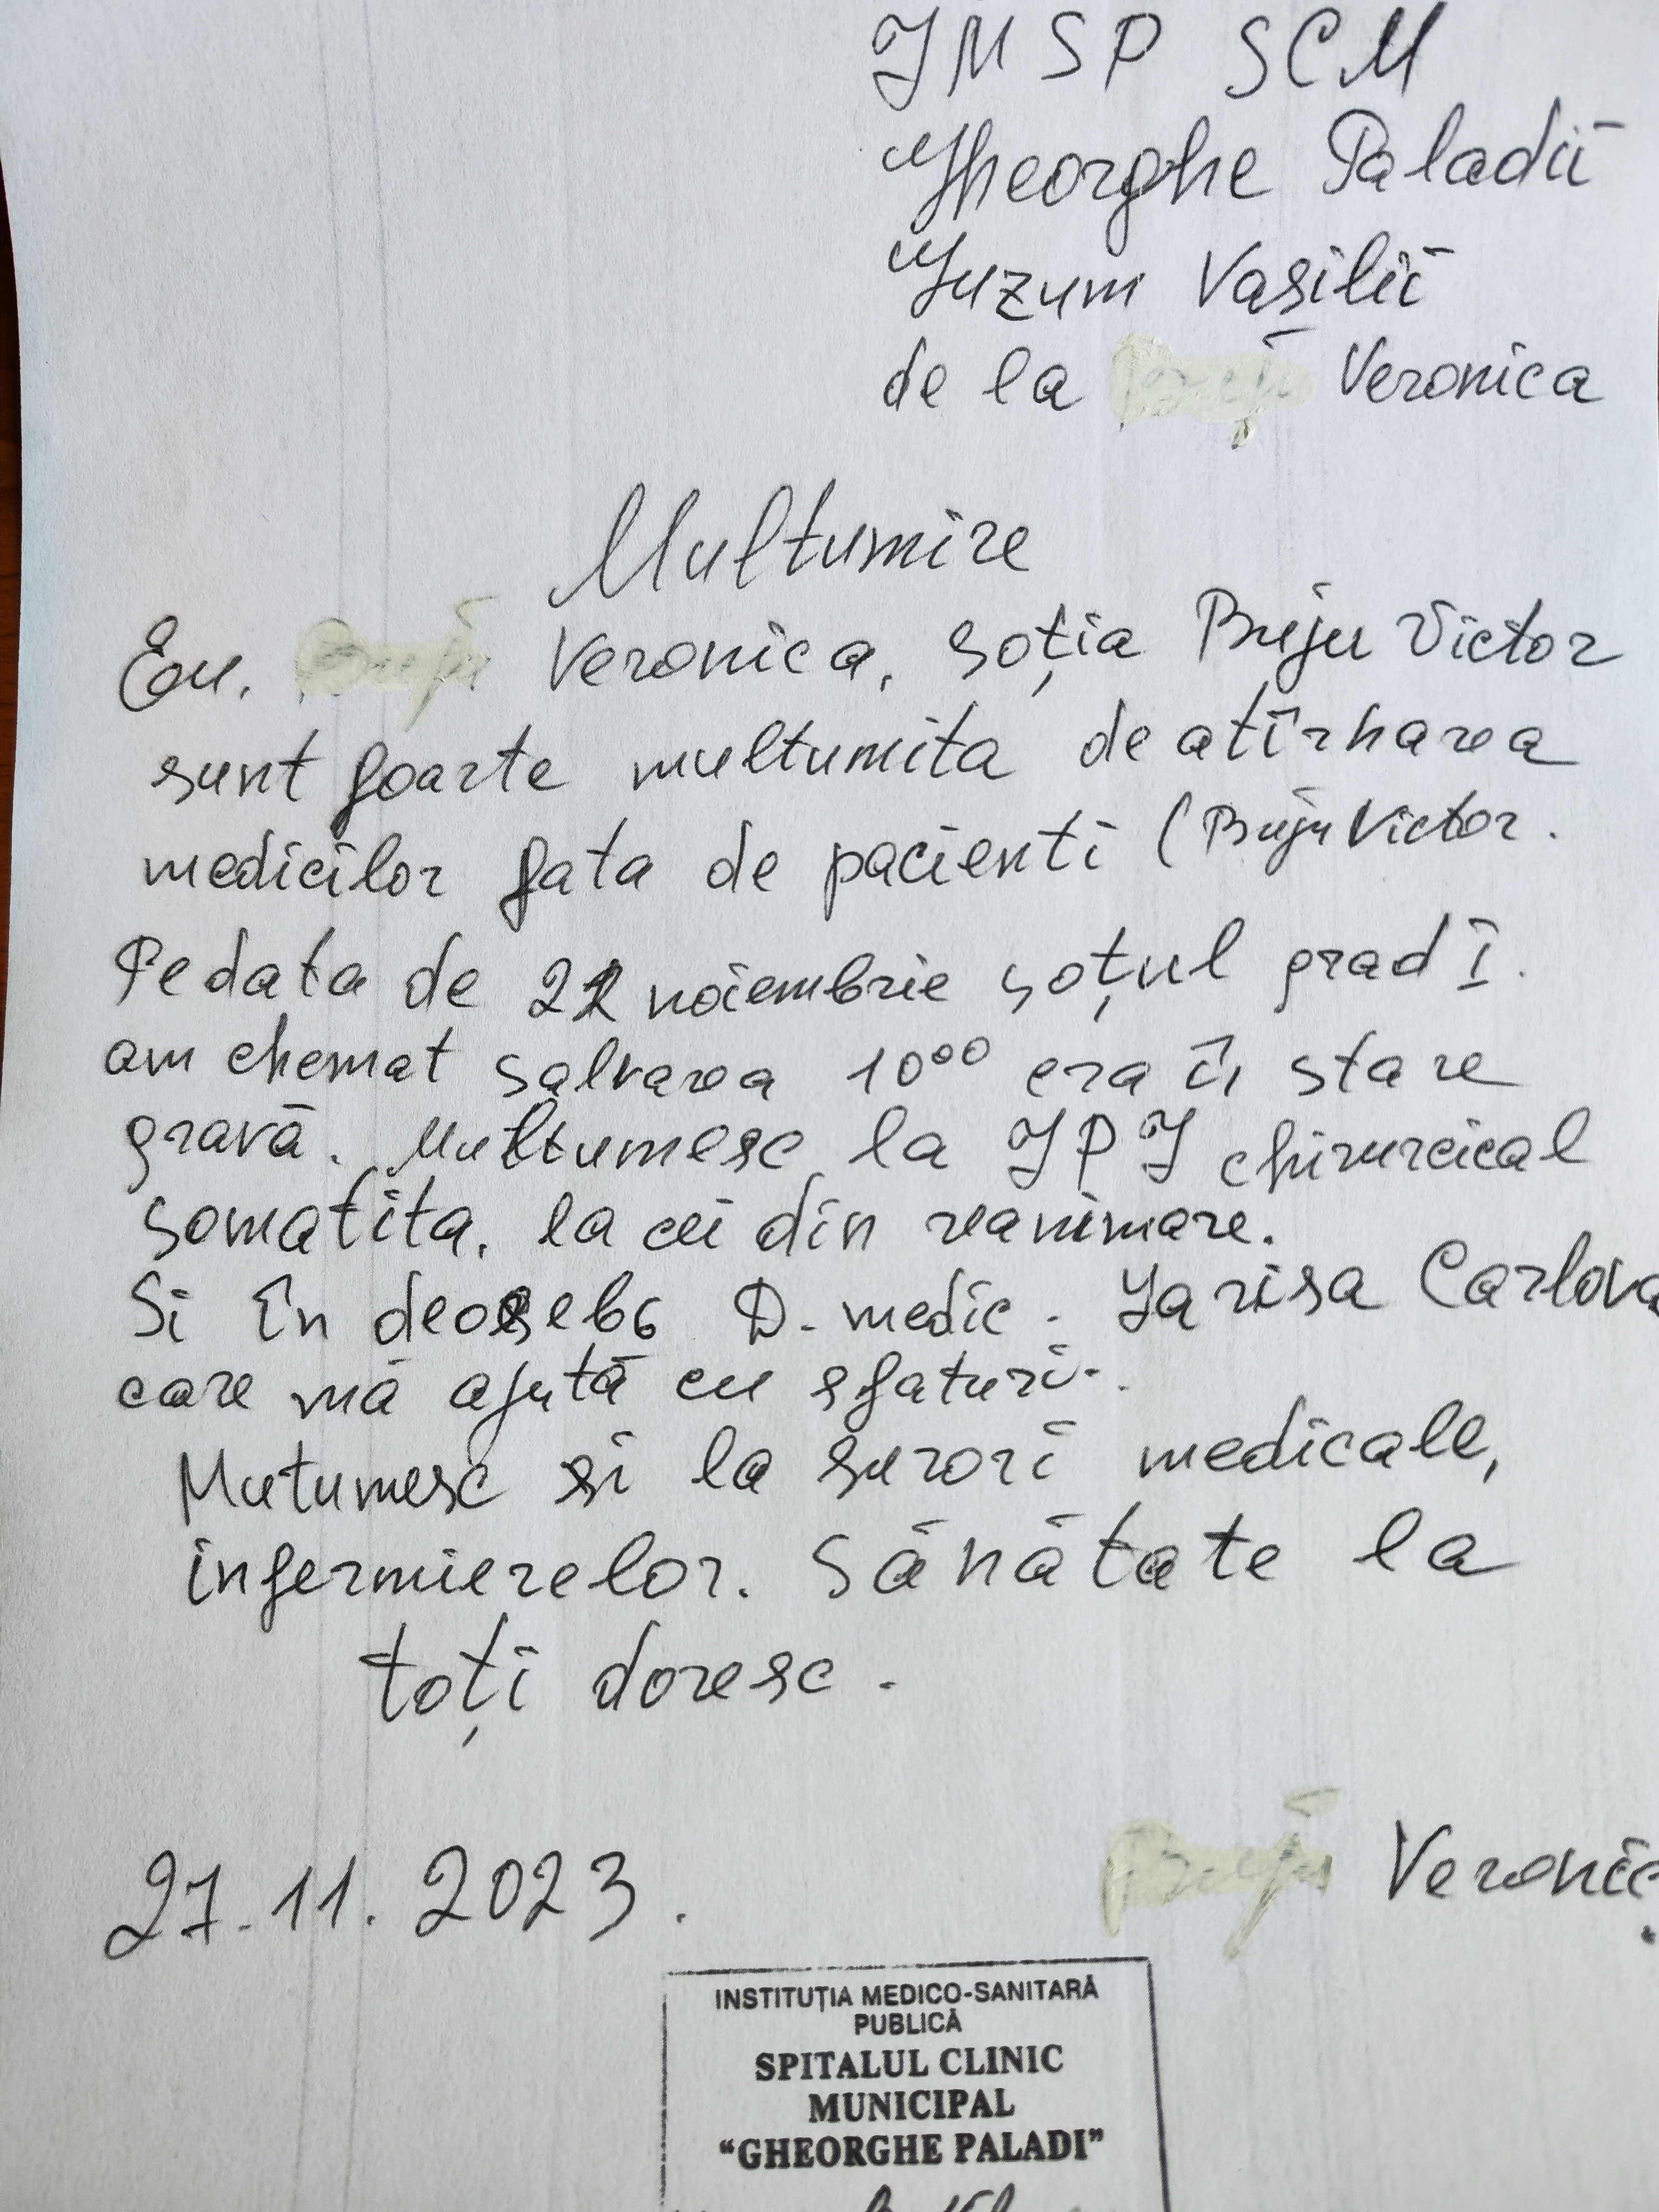 IMSP SCM
Gheorghe Paladii
Guzum Vasilii
de la Veronica
Multumire
Eu, Veronica, soția Buju Victor
sunt foarte multumita de atîrnarea
medicilor fata de pacienti (Buju Victor.
Pe data de noiembrie soțul grad I.
am chemat salvarea 10⁰⁰ era în stare
gravă. Multumesc la IPI chirurcical
somatita, la cei din reanimare.
Si în D. medic. Larisa Carlova
care mă ajută cu sfaturi.
Mutumesc si la surori medicale,
infermierelor. Sănătate la
toți doresc.
27.11.2023.
Veronic
INSTITUȚIA MEDICO-SANITARĂ
PUBLICĂ
SPITALUL CLINIC
MUNICIPAL
“GHEORGHE PALADI”